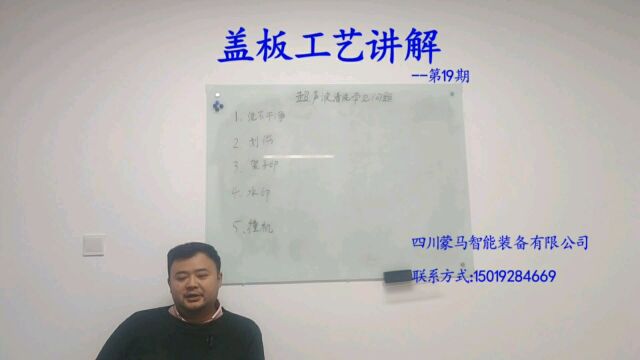 盖板工艺讲解
--第19期
超声波清洗常见问题
1、洗不干净
2、划伤
3、架子印
4、水印
5、撞机
四川蒙马智能装备有限公司
联系方式:15019284669